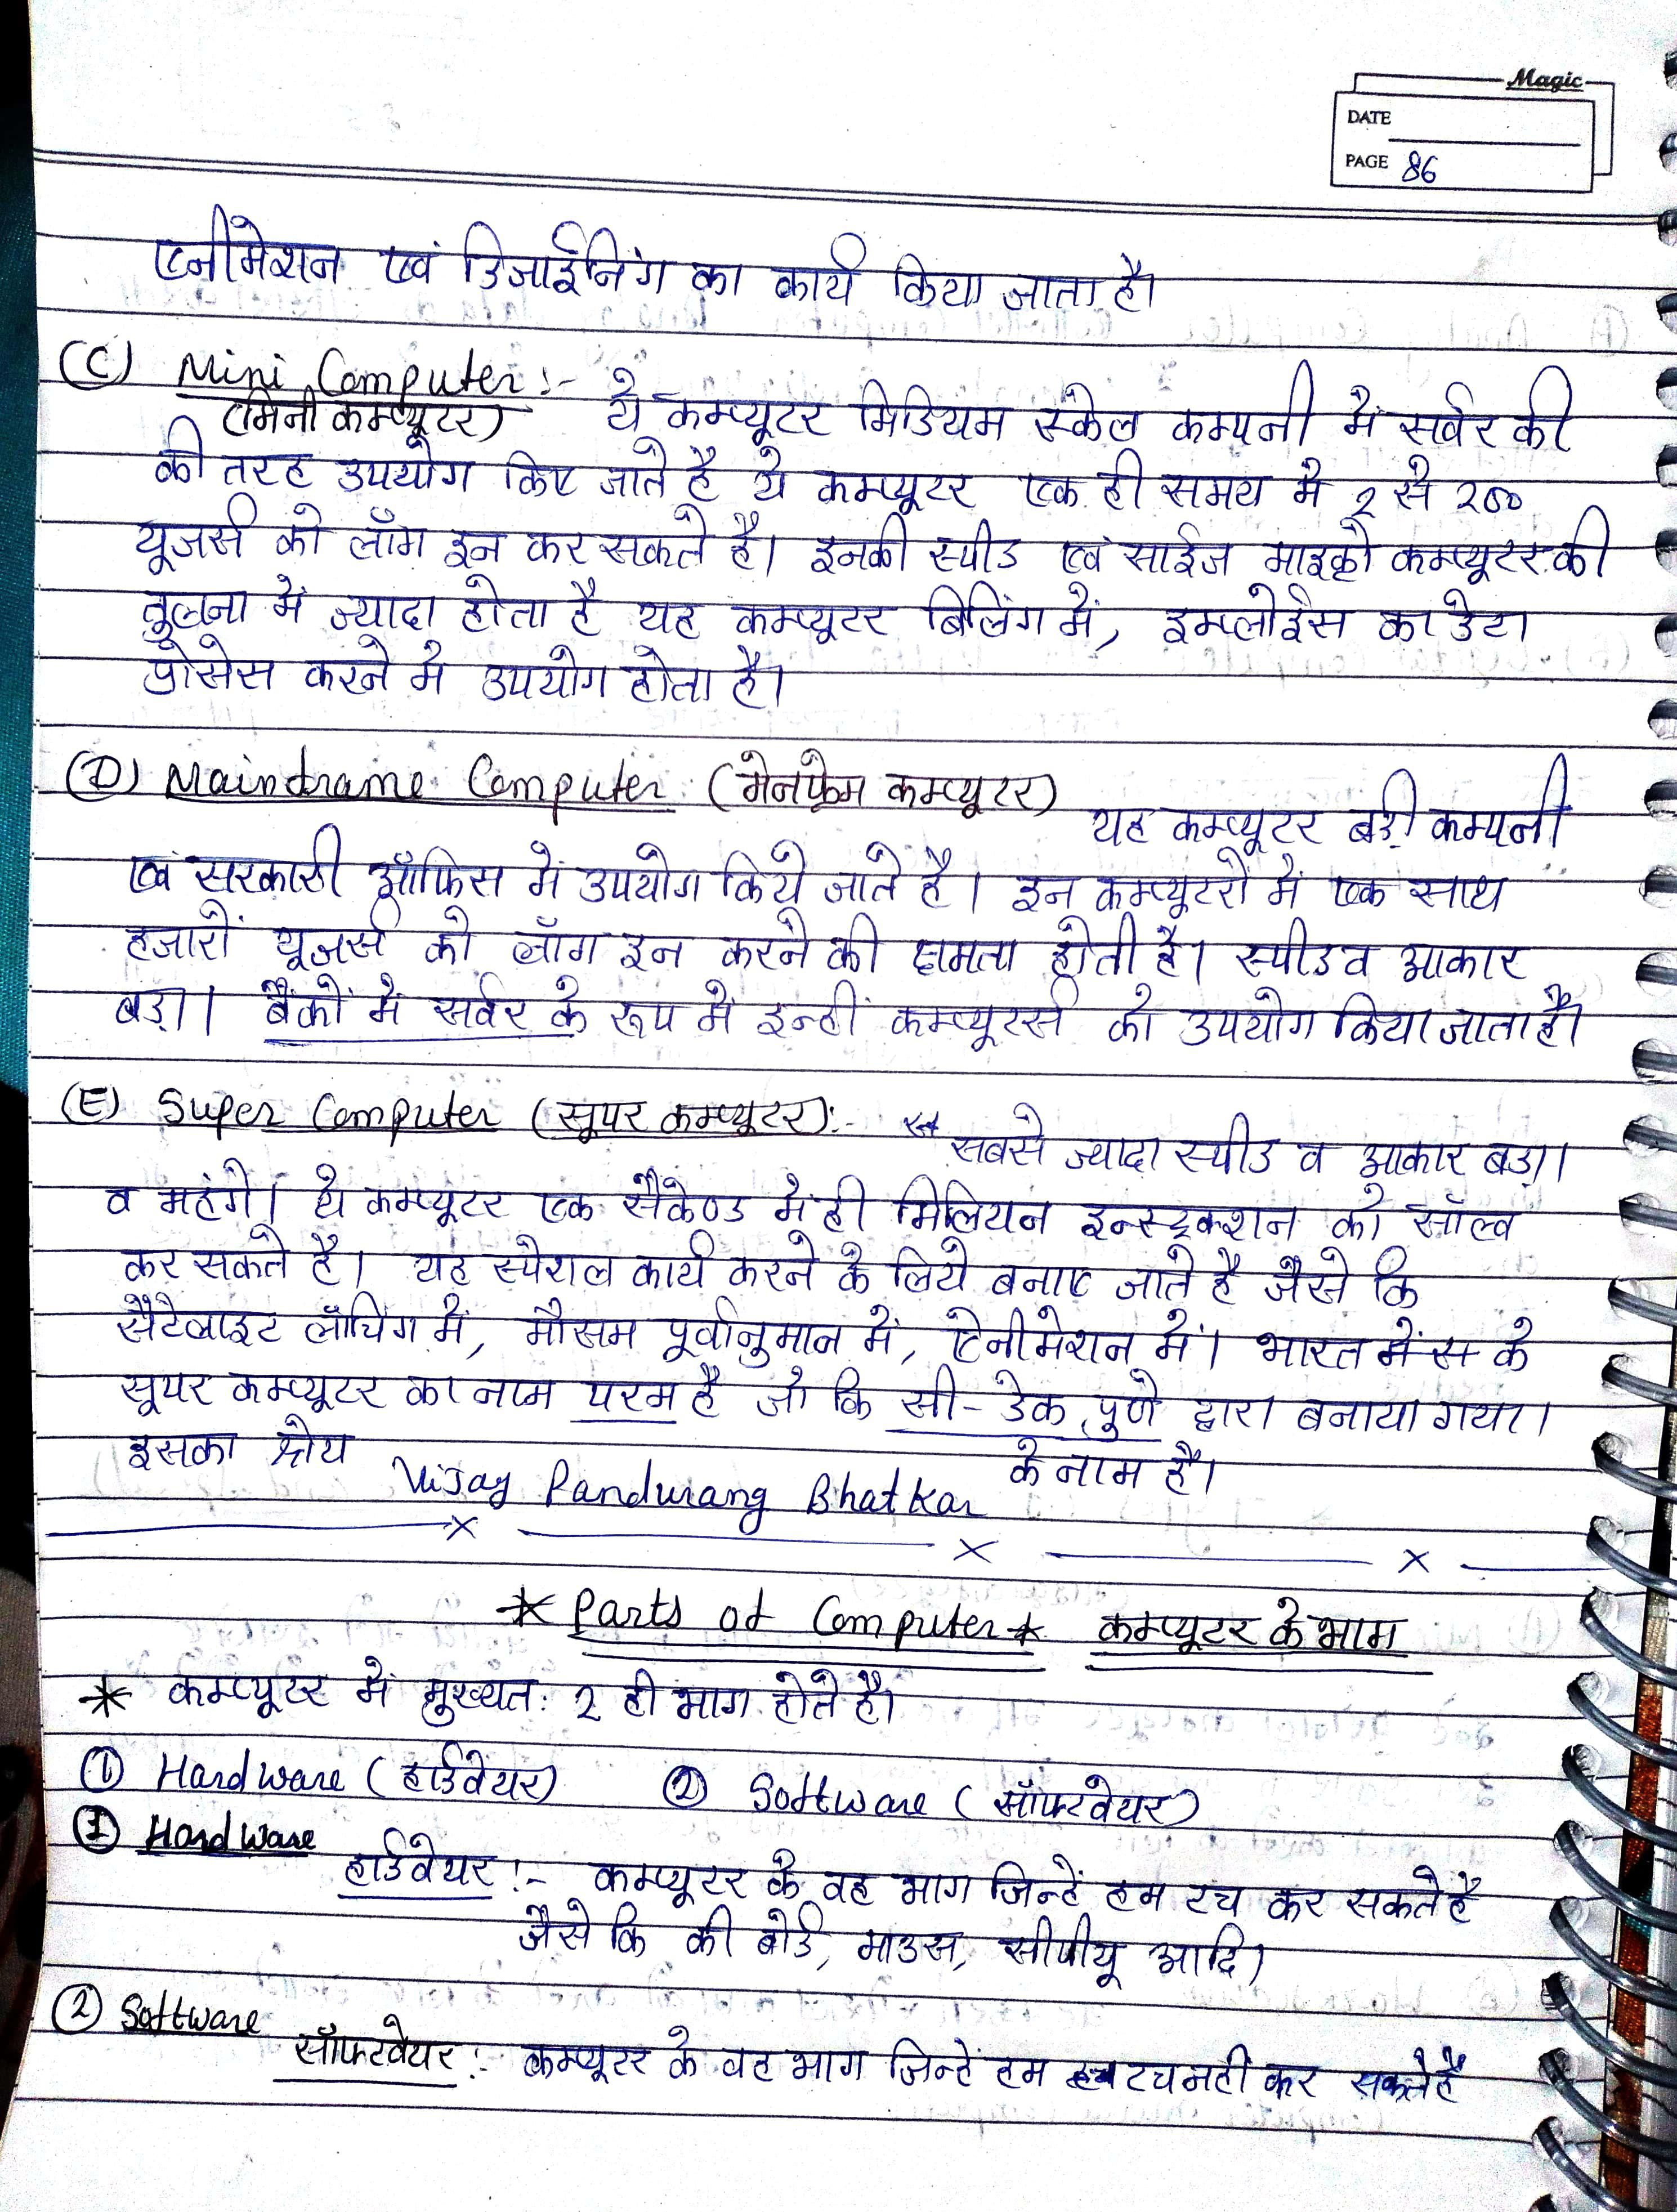 Magic
DATE
PAGE 86
एनीमेशन एवं डिजाईनिंग का कार्य किया जाता है।
(C) Mini Computer :-
(मिनी कम्प्यूटर) ये कम्प्यूटर मिडियम स्केल कम्पनी में सर्वर की
की तरह उपयोग किए जाते है ये कम्प्यूटर एक ही समय मे 2 से 200
यूजर्स को लॉग इन कर सकते है। इनकी स्पीड एवं साईज माइक्रो कम्प्यूटर की
तुलना में ज्यादा होता है यह कम्प्यूटर बिलिंग में, इम्प्लोईस का डेटा
प्रोसेस करने मे उपयोग होता है।
(D) Mainframe Computer (मेनफ्रेम कम्प्यूटर)
यह कम्प्यूटर बड़ी कम्पनी
एवं सरकारी ऑफिस में उपयोग किये जाते है। इन कम्प्यूटरों में एक साथ
हजारों यूजर्स को लॉग इन करने की क्षमता होती है। स्पीड व आकार
बड़ा। बैंकों में सर्वर के रूप में इन्हीं कम्प्यूटर्स को उपयोग किया जाता है।
(E) Super Computer (सूपर कम्प्यूटर):- सबसे ज्यादा स्पीड व आकार बड़ा।
व महंगे। ये कम्प्यूटर एक सैकेण्ड मे ही मिलियन इन्स्ट्रक्शन को सॉल्व
कर सकते है। यह स्पेशल कार्य करने के लिये बनाए जाते है जैसे कि
सैटेलाइट लॉचिंग में, मौसम पूर्वानुमान में, ऐनीमेशन में। भारत में स के
सूपर कम्प्यूटर का नाम परम है जो कि सी-डेक, पुणे द्वारा बनाया गया।
इसका श्रेय Vijay Pandurang Bhatkar के नाम है।
* Parts of Computer * कम्प्यूटर के भाग
* कम्प्यूटर में मुख्यत: 2 ही भाग होते है।
① Hardware (हार्डवेयर) ② Software (सॉफ्टवेयर)
① Hardware
हार्डवेयर :- कम्प्यूटर के वह भाग जिन्हें हम टच कर सकते है
जैसे कि की बोर्ड, माउस, सीपीयू आदि।
② Software
सॉफ्टवेयर :- कम्प्यूटर के वह भाग जिन्हे हम टच नही कर सकते है